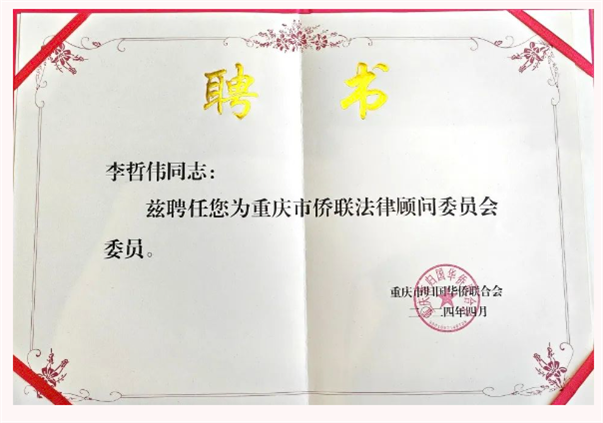 聘书
李哲伟同志：
兹聘任您为重庆市侨联法律顾问委员会
委员。
重庆市归国华侨联合会
二〇二四年四月